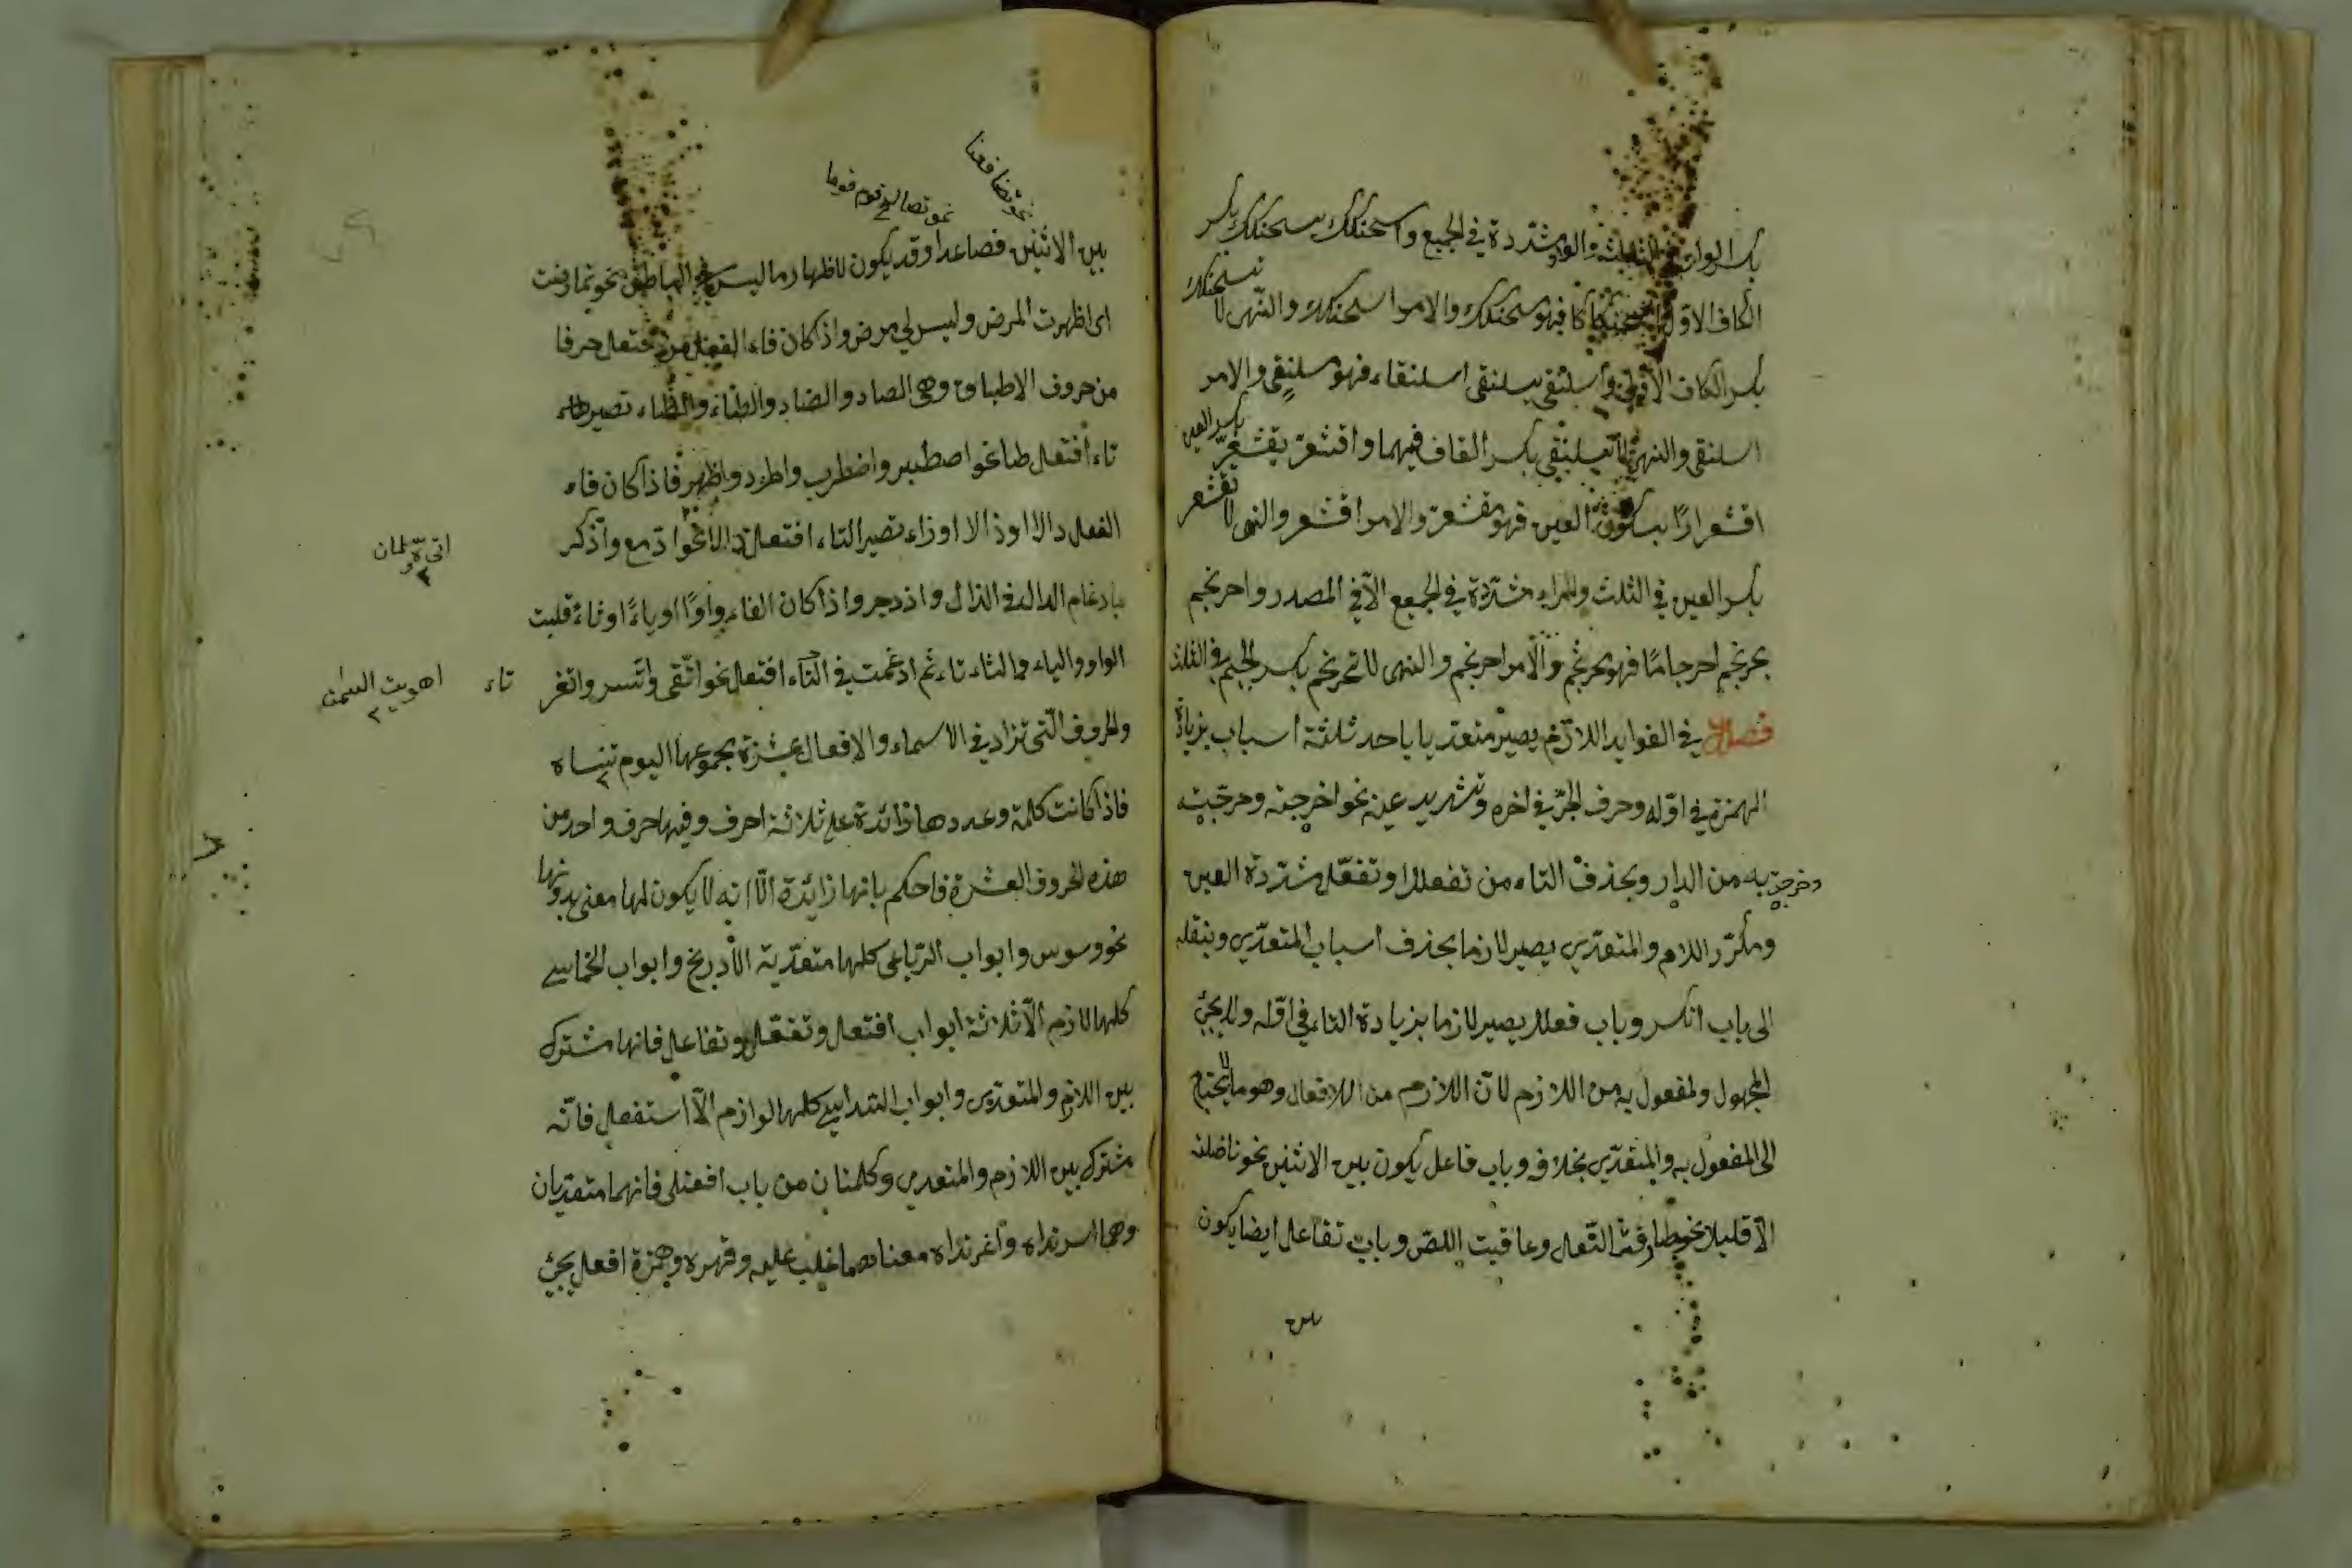 بكسر الواو في الثلثة والواو مشددة في الجميع واسحنكك يسحنكك بكسر
الكاف الاولى اسحنكاكا فهو مسحنكك والامر اسحنكك والنهي لا تسحنكك
بكسر الكاف الاولى واسلنقى يسلنقى اسلنقاء فهو مسلنقى والامر
اسلنقى والنهى لا تسلنقى بكسر القاف فيهما واقشعر يقشعر بكسر العين
اقشعرارًا بسكون العين فهو مقشعر والامر اقشعر والنهى لا تقشعر
بكسر العين في الثلث والراء مشددة في الجميع الّا في المصدر واحرنجم
يحرنجم احرنجامًا فهو محرنجم والامر احرنجم والنهى لا تحرنجم بكسر الجيم في الثلث
فصل في الفوايد اللازم يصير متعديا باحد ثلثة اسباب بزيادة
الهمزة في اوّله وحرف الجرّ في اخره وتشديد عينه نحو اخرجته وخرّجته
وخرجت به من الدار وبحذف التاء من تفعلل وتفعّل مشدّدة العين
ومكرّر اللام والمتعدّى يصير لازما بحذف اسباب المتعدّى وبنقله
الى باب انكسر وباب فعلل يصير لازما بزيادة التاء في اوّله ولا يجئ
المجهول والمفعول به من اللازم لانّ اللازم من الافعال وهو ما لا يحتاج
الى المفعول به والمتعدّى بخلافه وباب فاعل يكون بين الاثنين نحو ناضلته
الّا قليلا نحو طارقت النّعل وعاقبت اللصّ وباب تفاعل ايضا يكون
بين
نحو تصالح قوم قوما
بين الاثنين فصاعدا وقد يكون لاظهار ما ليس في الباطن نحو تمارضت
اى اظهرت المرض وليس لي مرض واذ كان فاء الفعل من افتعل حرفا
من حروف الاطباق وهى الصاد والضاد والطاء والظاء تصير
تاء افتعل طا نحو اصطبر واضطرب واطّرد واظهر فاذا كان فاء
الفعل دالا او ذالا او زاء تصير التاء افتعل دالا نحو ادّمع واذّكر
بادغام الدال في الذال وازدجر واذا كان الفاء واوًا او ياءً او ثاءً قلبت
الواو والياء والثاء تاء ثم ادغمت في التاء افتعل نحو اتّقى واتّسر واتغر
تاء
والحروف الّتى تزاد في الاسماء والافعال عشرة مجموعها اليوم تنساه
فاذا كانت كلمة وعددها زائدة على ثلاثة احرف وفيها حرف واحد من
هذه الحروف العشرة فاحكم بانها زائدة الّا انه لا يكون لها معنى بدونها
نحو وسوس وابواب الرّباعى كلها متعدّية الّا دربخ وابواب الخماسي
كلها لازم الّا ثلاثة ابواب افتعل وتفعّل وتفاعل فانها مشترك
بين اللازم والمتعدّى وابواب السّداسي كلها لوازم الّا استفعل فانّه
مشترك بين اللازم والمتعدى وكلمتان من باب افعنلى فانهما متعديان
وهما اسرنداه واغرنداه معناهما غلب عليه وقهره وهمزة افعل يجئ